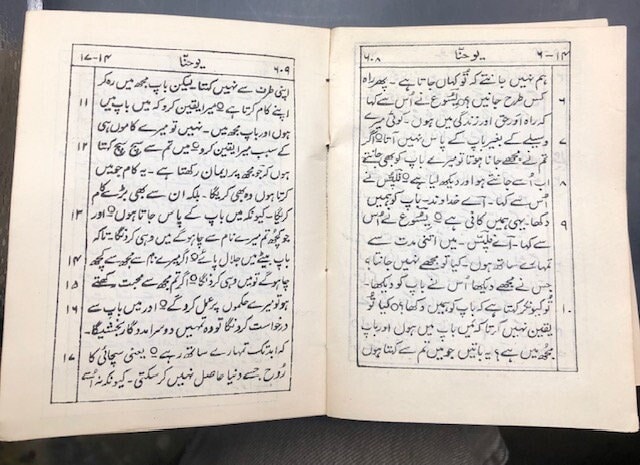 ۶-۱۴ یوحنّا ۶۰۸
ہم نہیں جانتے کہ تُو کہاں جاتا ہے۔ پھر راہ
کس طرح جانیں؟ یسُوع نے اُس سے کہا ۶
کہ راہ اور حق اور زندگی میں ہوں۔ کوئی میرے
وسیلے کے بغیر باپ کے پاس نہیں آتا۔ اگر ۷
تم نے مجھے جانا ہوتا تو میرے باپ کو بھی جانتے
اب اُسے جانتے ہو اور دیکھ لیا ہے۔ فلپُّس نے ۸
اُس سے کہا۔ اَے خداوند۔ باپ کو ہمیں
دکھا۔ یہی ہمیں کافی ہے۔ یسُوع نے اُس ۹
سے کہا۔ اَے فلپُّس۔ میں اتنی مدت سے
تمہارے ساتھ ہوں۔ کیا تُو مجھے نہیں جانتا؟
جس نے مجھے دیکھا اُس نے باپ کو دیکھا۔
تُو کیونکر کہتا ہے کہ باپ کو ہمیں دکھا؟ کیا تُو ۱۰
یقین نہیں کرتا کہ میں باپ میں ہوں اور باپ
مجھ میں ہے؟ یہ باتیں جو میں تم سے کہتا ہوں
۶۰۹ یوحنّا ۱۷-۱۴
اپنی طرف سے نہیں کہتا لیکن باپ مجھ میں رہ کر
اپنے کام کرتا ہے۔ میرا یقین کرو کہ میں باپ میں ۱۱
ہوں اور باپ مجھ میں۔ نہیں تو میرے کاموں ہی
کے سبب میرا یقین کرو۔ میں تم سے سچ سچ کہتا ۱۲
ہوں کہ جو مجھ پر ایمان رکھتا ہے۔ یہ کام جو میں
کرتا ہوں وہ بھی کریگا۔ بلکہ ان سے بھی بڑے کام
کریگا۔ کیونکہ میں باپ کے پاس جاتا ہوں۔ اور ۱۳
جو کچھ تم میرے نام سے چاہو گے میں وہی کرونگا۔ تاکہ
باپ بیٹے میں جلال پائے۔ اگر میرے نام سے مجھ سے کچھ ۱۴
چاہو گے تو میں وہی کرونگا۔ اگر تم مجھ سے محبت رکھتے ۱۵
ہو تو میرے حکموں پر عمل کرو گے۔ اور میں باپ سے ۱۶
درخواست کرونگا تو وہ تمہیں دوسرا مددگار بخشیگا۔
کہ ابد تک تمہارے ساتھ رہے۔ یعنی سچائی کا ۱۷
رُوح جسے دنیا حاصل نہیں کر سکتی۔ کیونکہ نہ اُسے